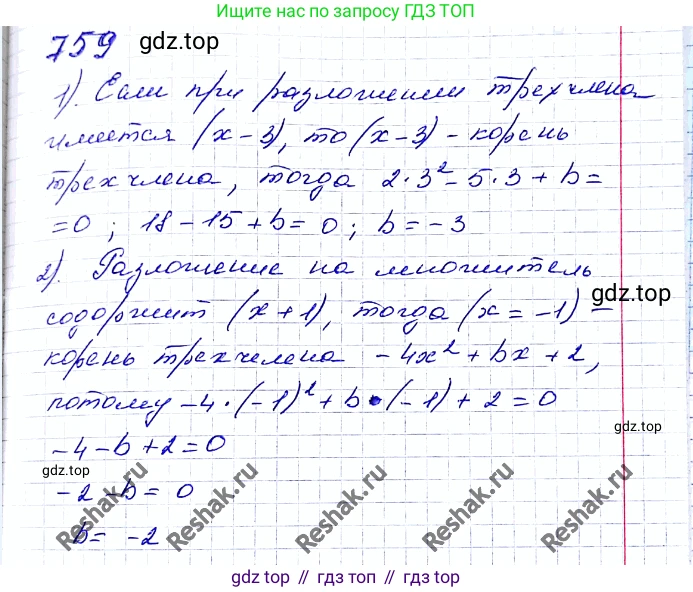 Ищите нас по запросу ГДЗ ТОП
759 gdz.top
1). Если при разложении трехчлена
имеется (x - 3), то (x - 3) - корень
трехчлена, тогда 2·3² - 5·3 + b =
= 0 ; 18 - 15 + b = 0 ; b = -3
2). Разложение на множитель
содоржит (x + 1), тогда (x = -1) -
gdz.top
корень трехчлена -4x² + bx + 2,
потому -4·(-1)² + b·(-1) + 2 = 0
-4 - b + 2 = 0
gdz.top
gdz.top
-2 - b = 0
b = -2
Reshak.ru
Reshak.ru
Reshak.ru
Reshak.ru
Reshak.ru
gdz.top // гдз топ // гдз.топ // gdz.top